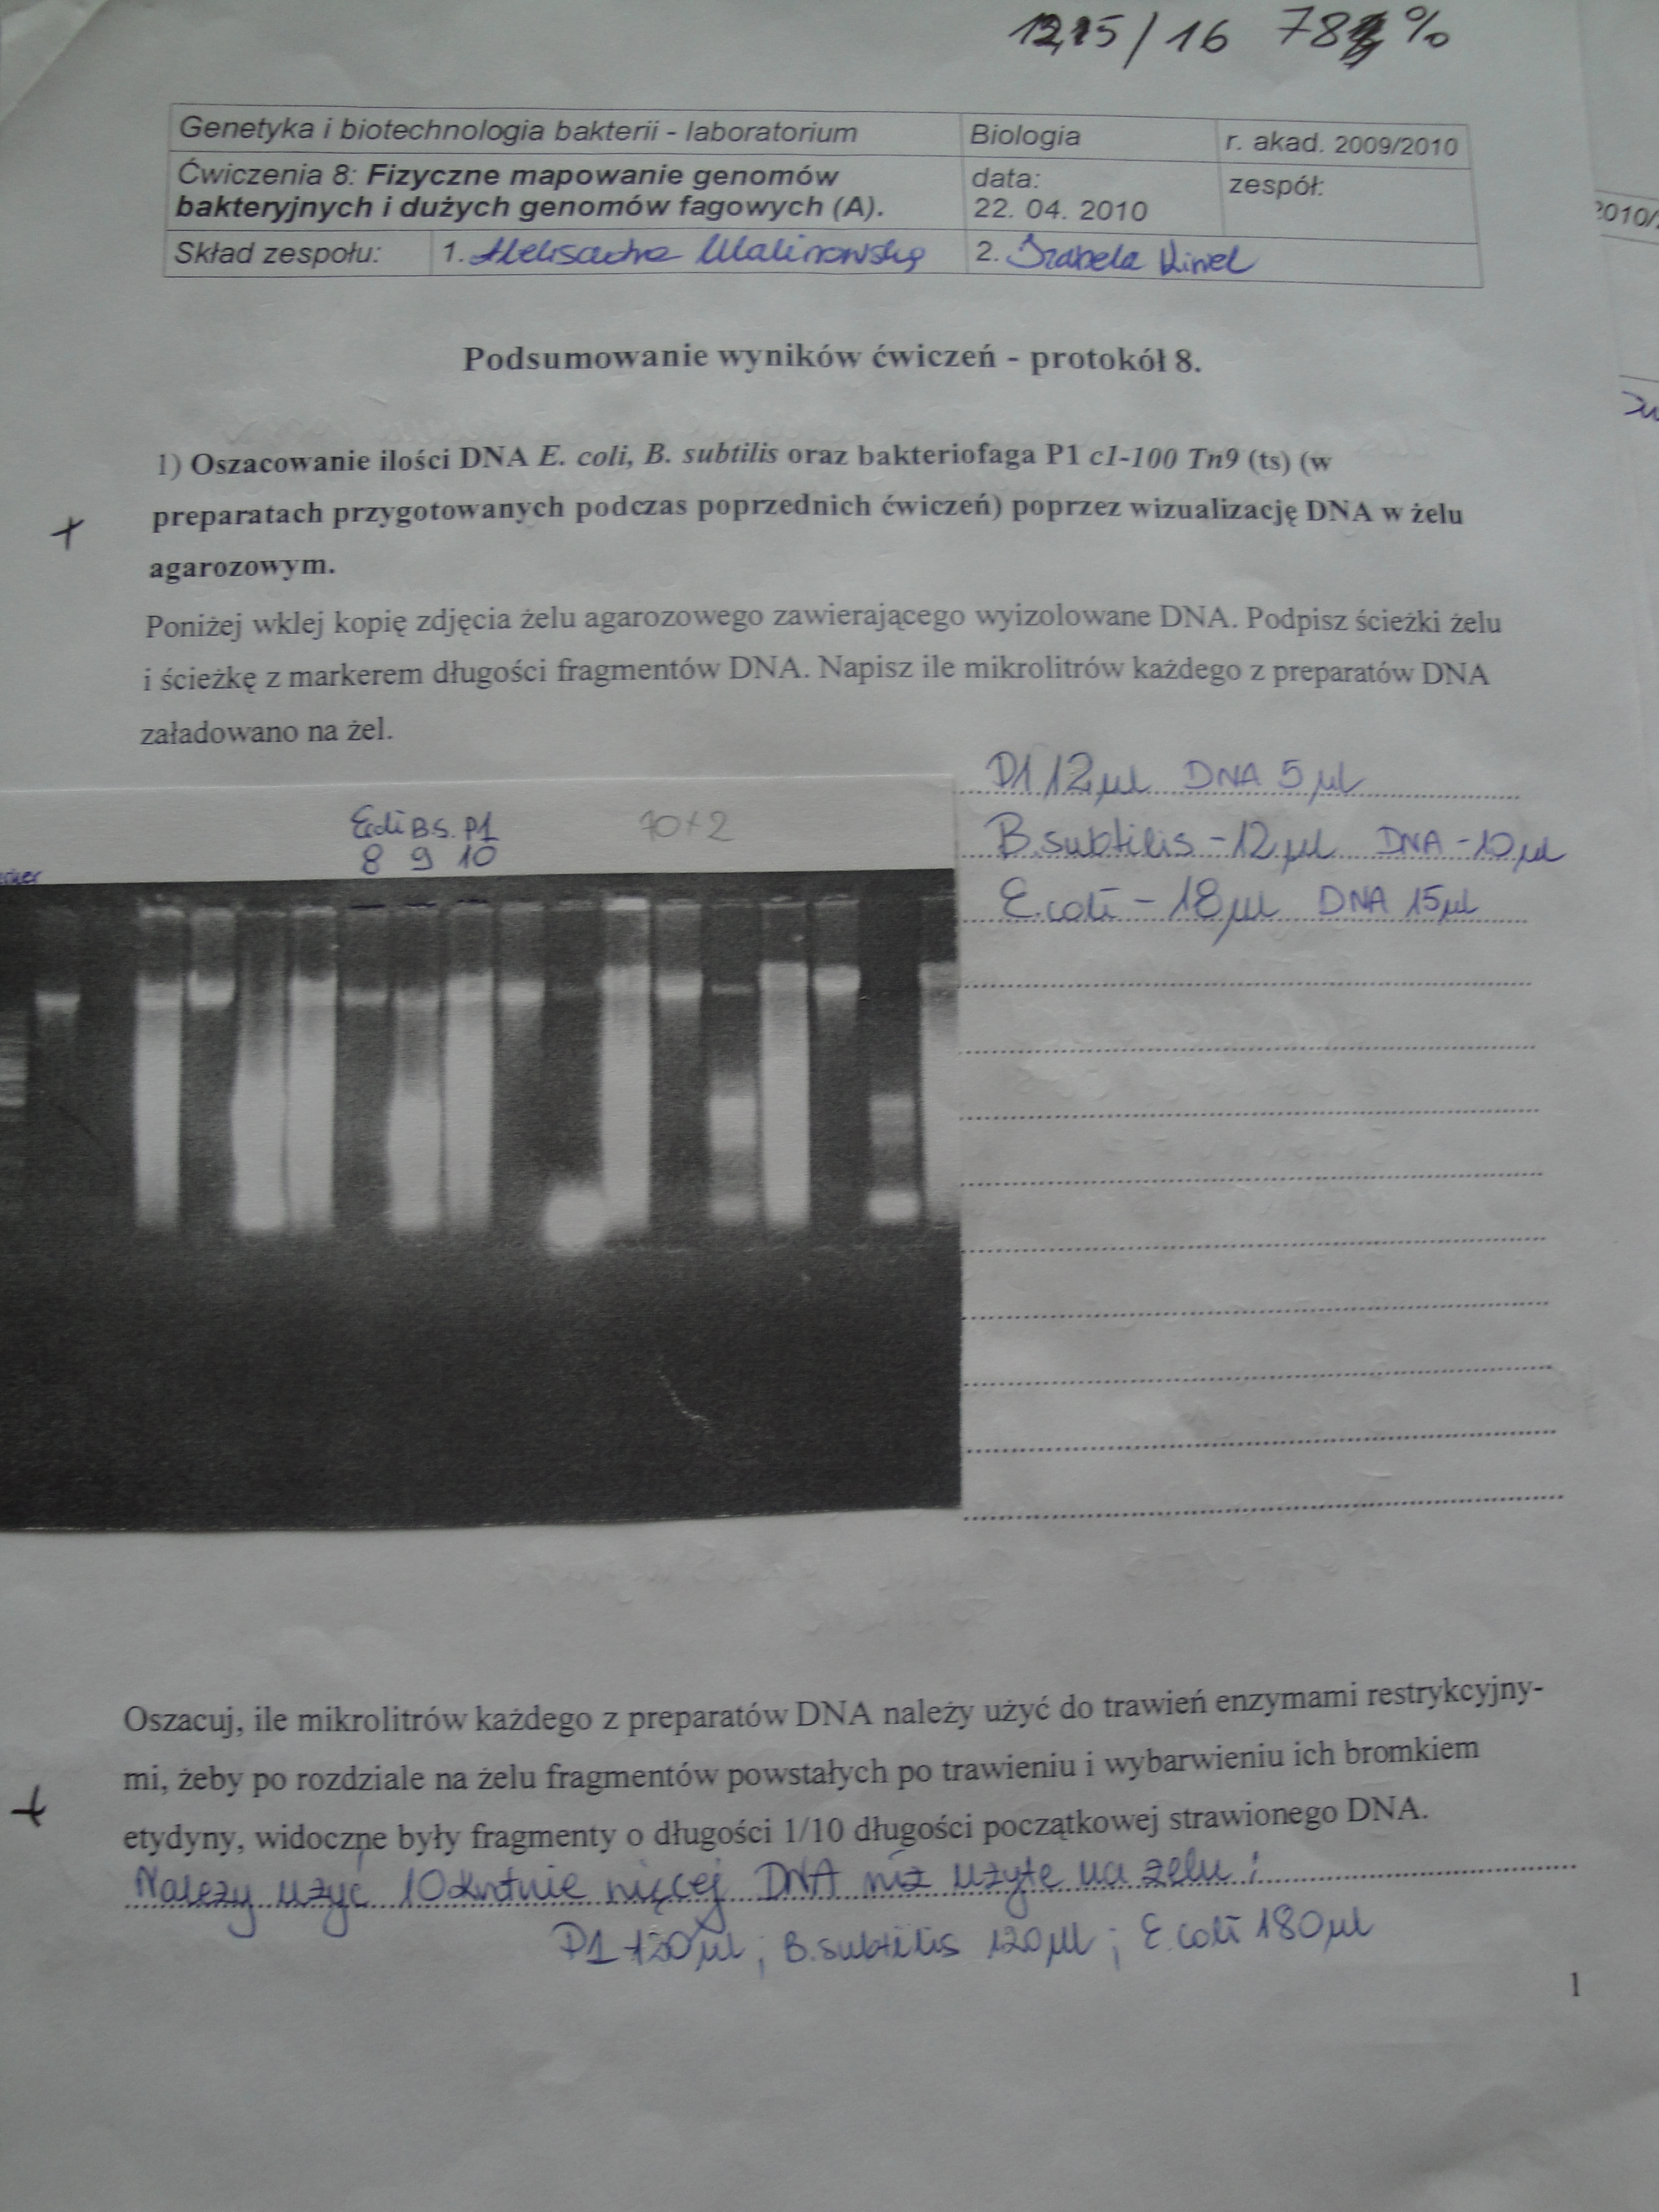 / 16 78 %
Genetyka i biotechnologia bakterii - laboratorium Biologia r. akad. 2009/2010
Ćwiczenia 8: Fizyczne mapowanie genomów bakteryjnych i dużych genomów fagowych (A). data: 22. 04. 2010 zespół:
Skład zespołu: 1. Aleksandra Malinowska 2. Izabela
2010/
Podsumowanie wyników ćwiczeń - protokół 8.
1) Oszacowanie ilości DNA E. coli, B. subtilis oraz bakteriofaga P1 c1-100 Tn9 (ts) (w
+ preparatach przygotowanych podczas poprzednich ćwiczeń) poprzez wizualizację DNA w żelu
agarozowym.
Poniżej wklej kopię zdjęcia żelu agarozowego zawierającego wyizolowane DNA. Podpisz ścieżki żelu
i ścieżkę z markerem długości fragmentów DNA. Napisz ile mikrolitrów każdego z preparatów DNA
załadowano na żel.
P1 12 µl DNA 5 µl
B.subtilis - 12 µl DNA - 10 µl
E.coli - 18 µl DNA 15 µl
E.coli B.S. P1
8 9 10
10+2
Oszacuj, ile mikrolitrów każdego z preparatów DNA należy użyć do trawień enzymami restrykcyjny-
mi, żeby po rozdziale na żelu fragmentów powstałych po trawieniu i wybarwieniu ich bromkiem
+ etydyny, widoczne były fragmenty o długości 1/10 długości początkowej strawionego DNA.
Należy użyć 10krotnie więcej DNA niż użyte na żelu:
P1 120 µl ; B.subtilis 120 µl ; E.coli 180 µl
1